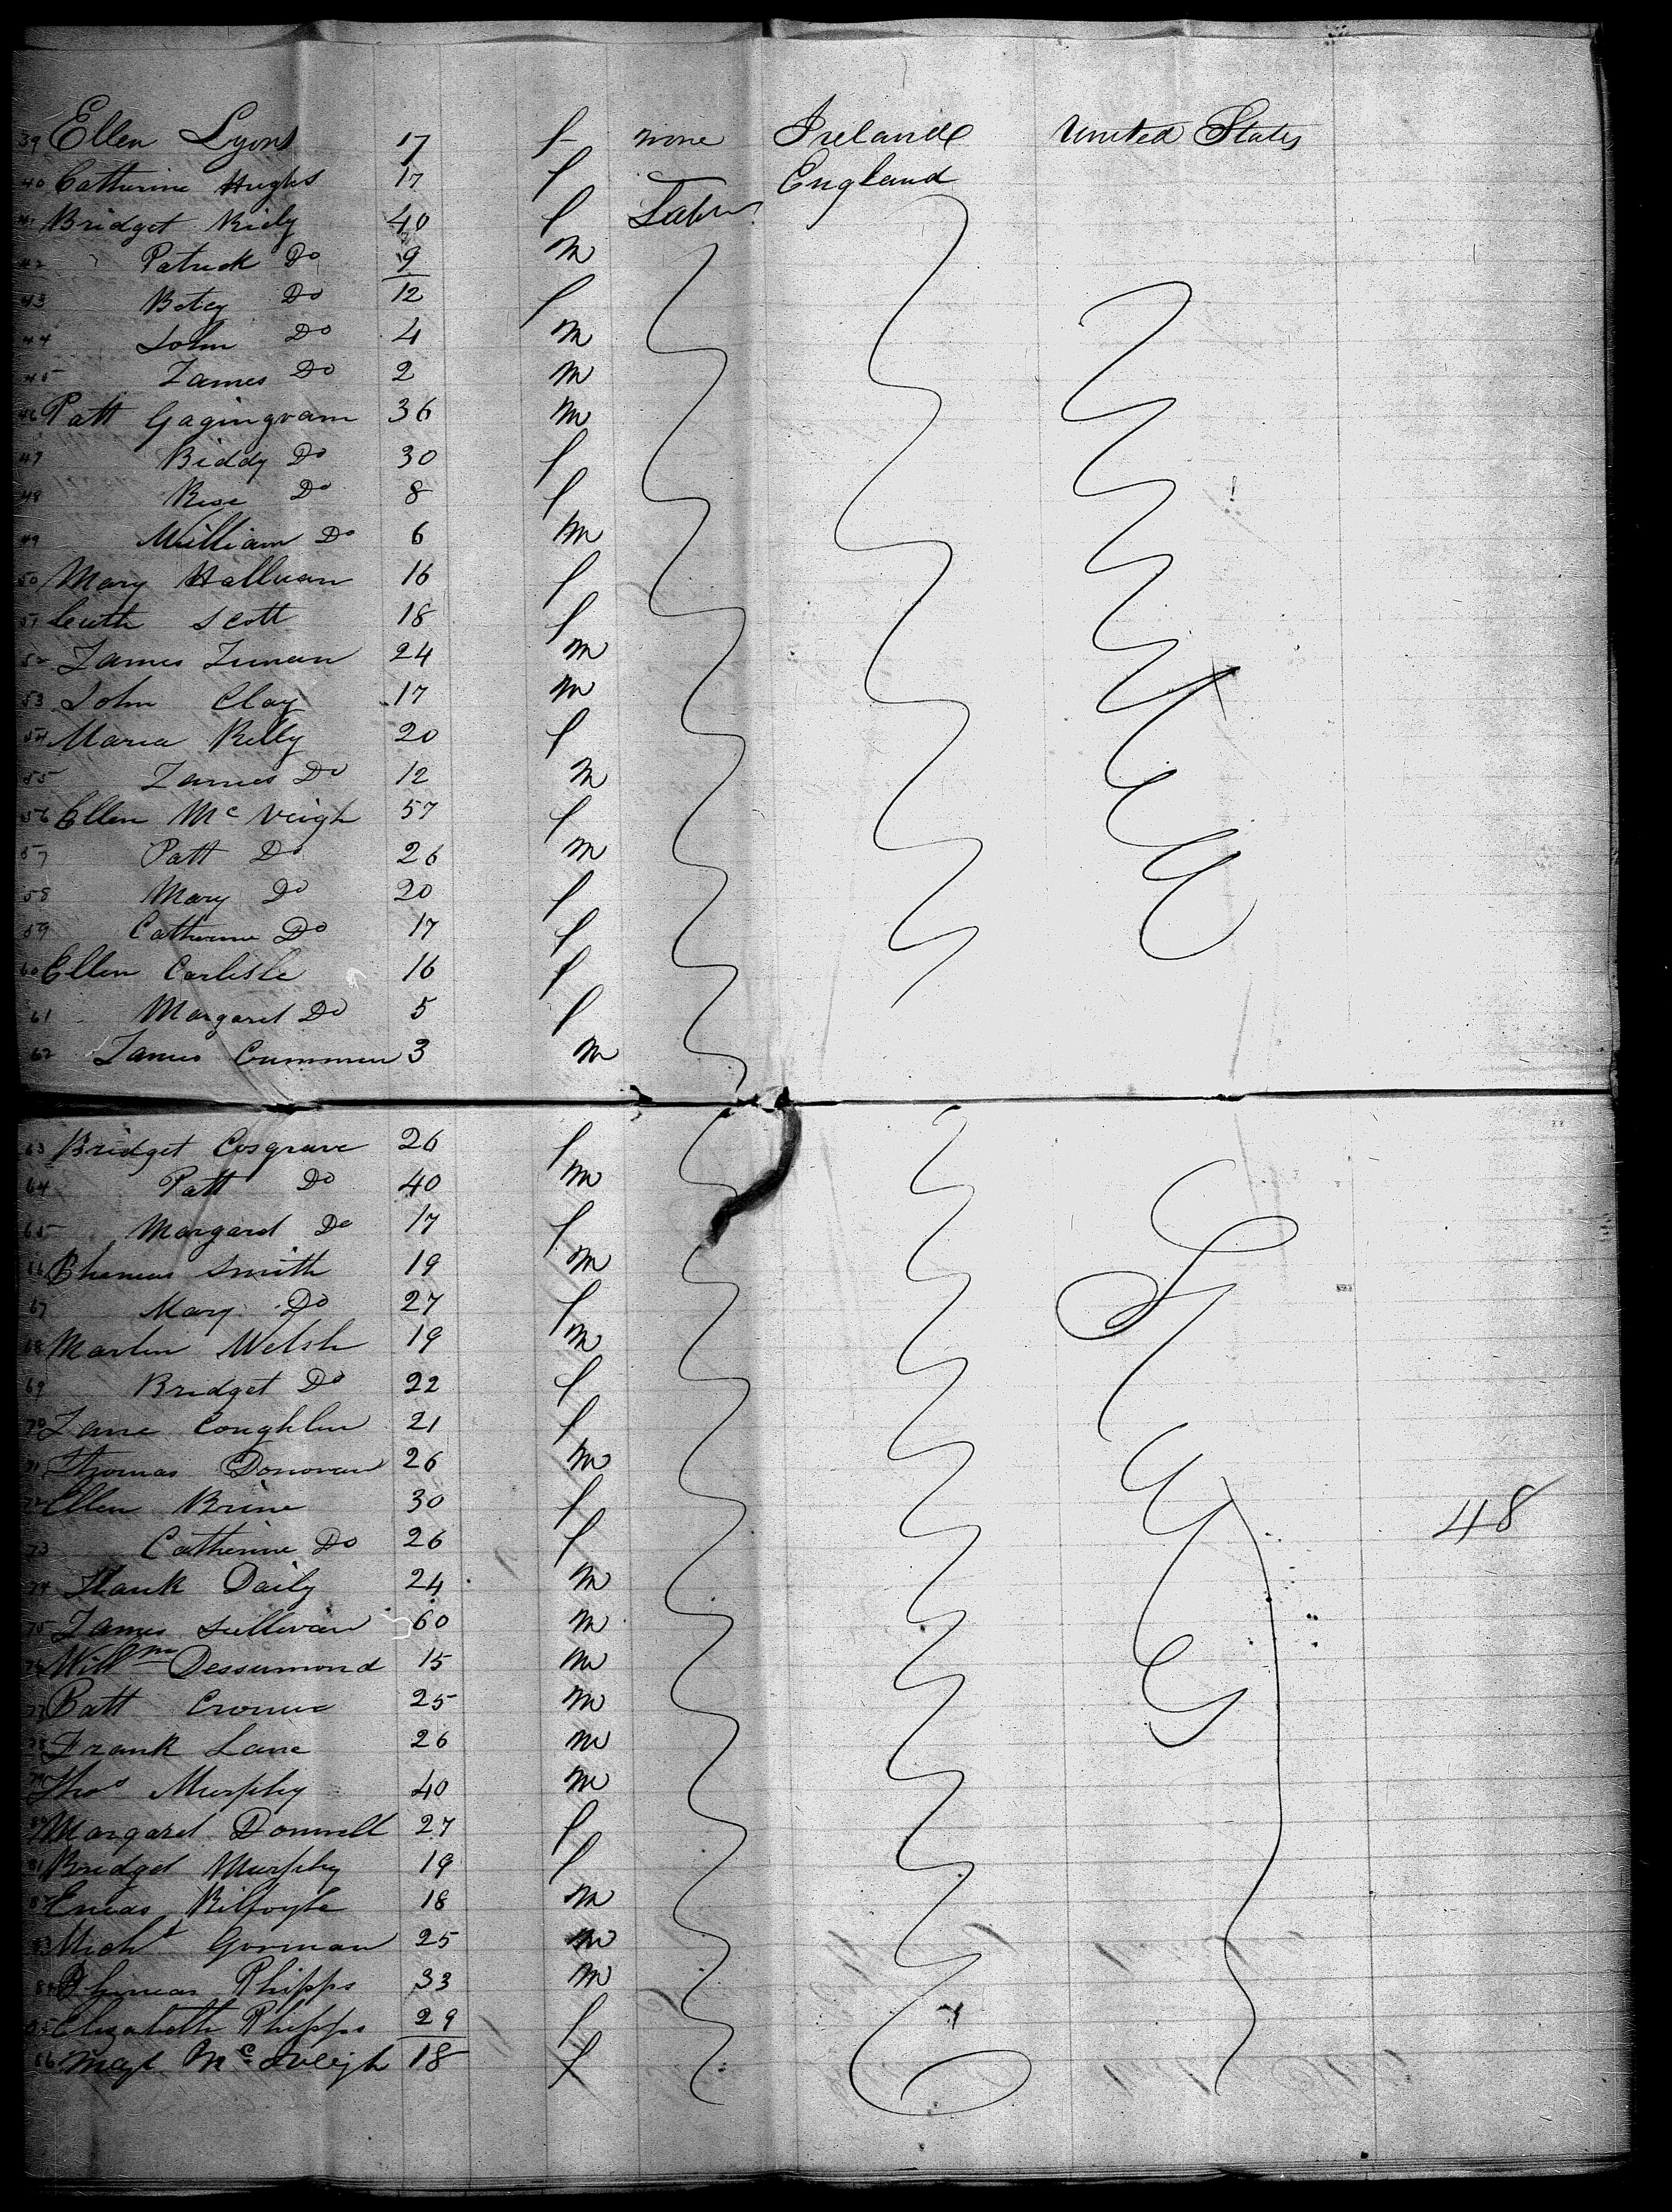 39 Ellen Lyons 17 f none Ireland United States
40 Catherine Hughs 17 f England
41 Bridget Rily 40 f Labr
42 " Patrick Do 9 m
43 Betey Do 12 f
44 John Do 4 m
45 James Do 2 m
46 Patt Gagingram 36 m
47 Biddy Do 30 f
48 Rose Do 8 f
49 William Do 6 m
50 Mary Halluan 16 f
51 Cath Scott 18 f
52 James 24 m
53 John Clay 17 m
54 Maria Kelly 20 f
55 James Do 12 m
56 Ellen Mc Veigh 57 f
57 Patt Do 26 m
58 Mary Do 20 f
59 Catherine Do 17 f
60 Ellen Carlisle 16 f
61 Margaret Do 5 f
62 James Cummin 3 m
63 Bridget Cosgrave 26 f
64 Patt Do 40 m
65 Margaret Do 17 f
66 Smith 19 m
67 Mary Do 27 f
68 Martin Welsh 19 m
69 Bridget Do 22 f
70 Jane Coughlin 21 f
71 Thomas Donovan 26 m
72 Ellen Brine 30 f 48
73 Catherine Do 26 f
74 Daily 24 m
75 James Sullivan 60 m
76 Willm Dessumond 15 m
77 Batt 25 m
78 Frank Lane 26 m
79 Thos Murphy 40 m
80 Margaret Donnell 27 f
81 Bridget Murphy 19 f
82 Eneas Kilfoyle 18 m
83 Michl Gorman 25 m
84 Phipps 33 m
85 Elizabeth Phipps 29 f
86 Magt 18 f